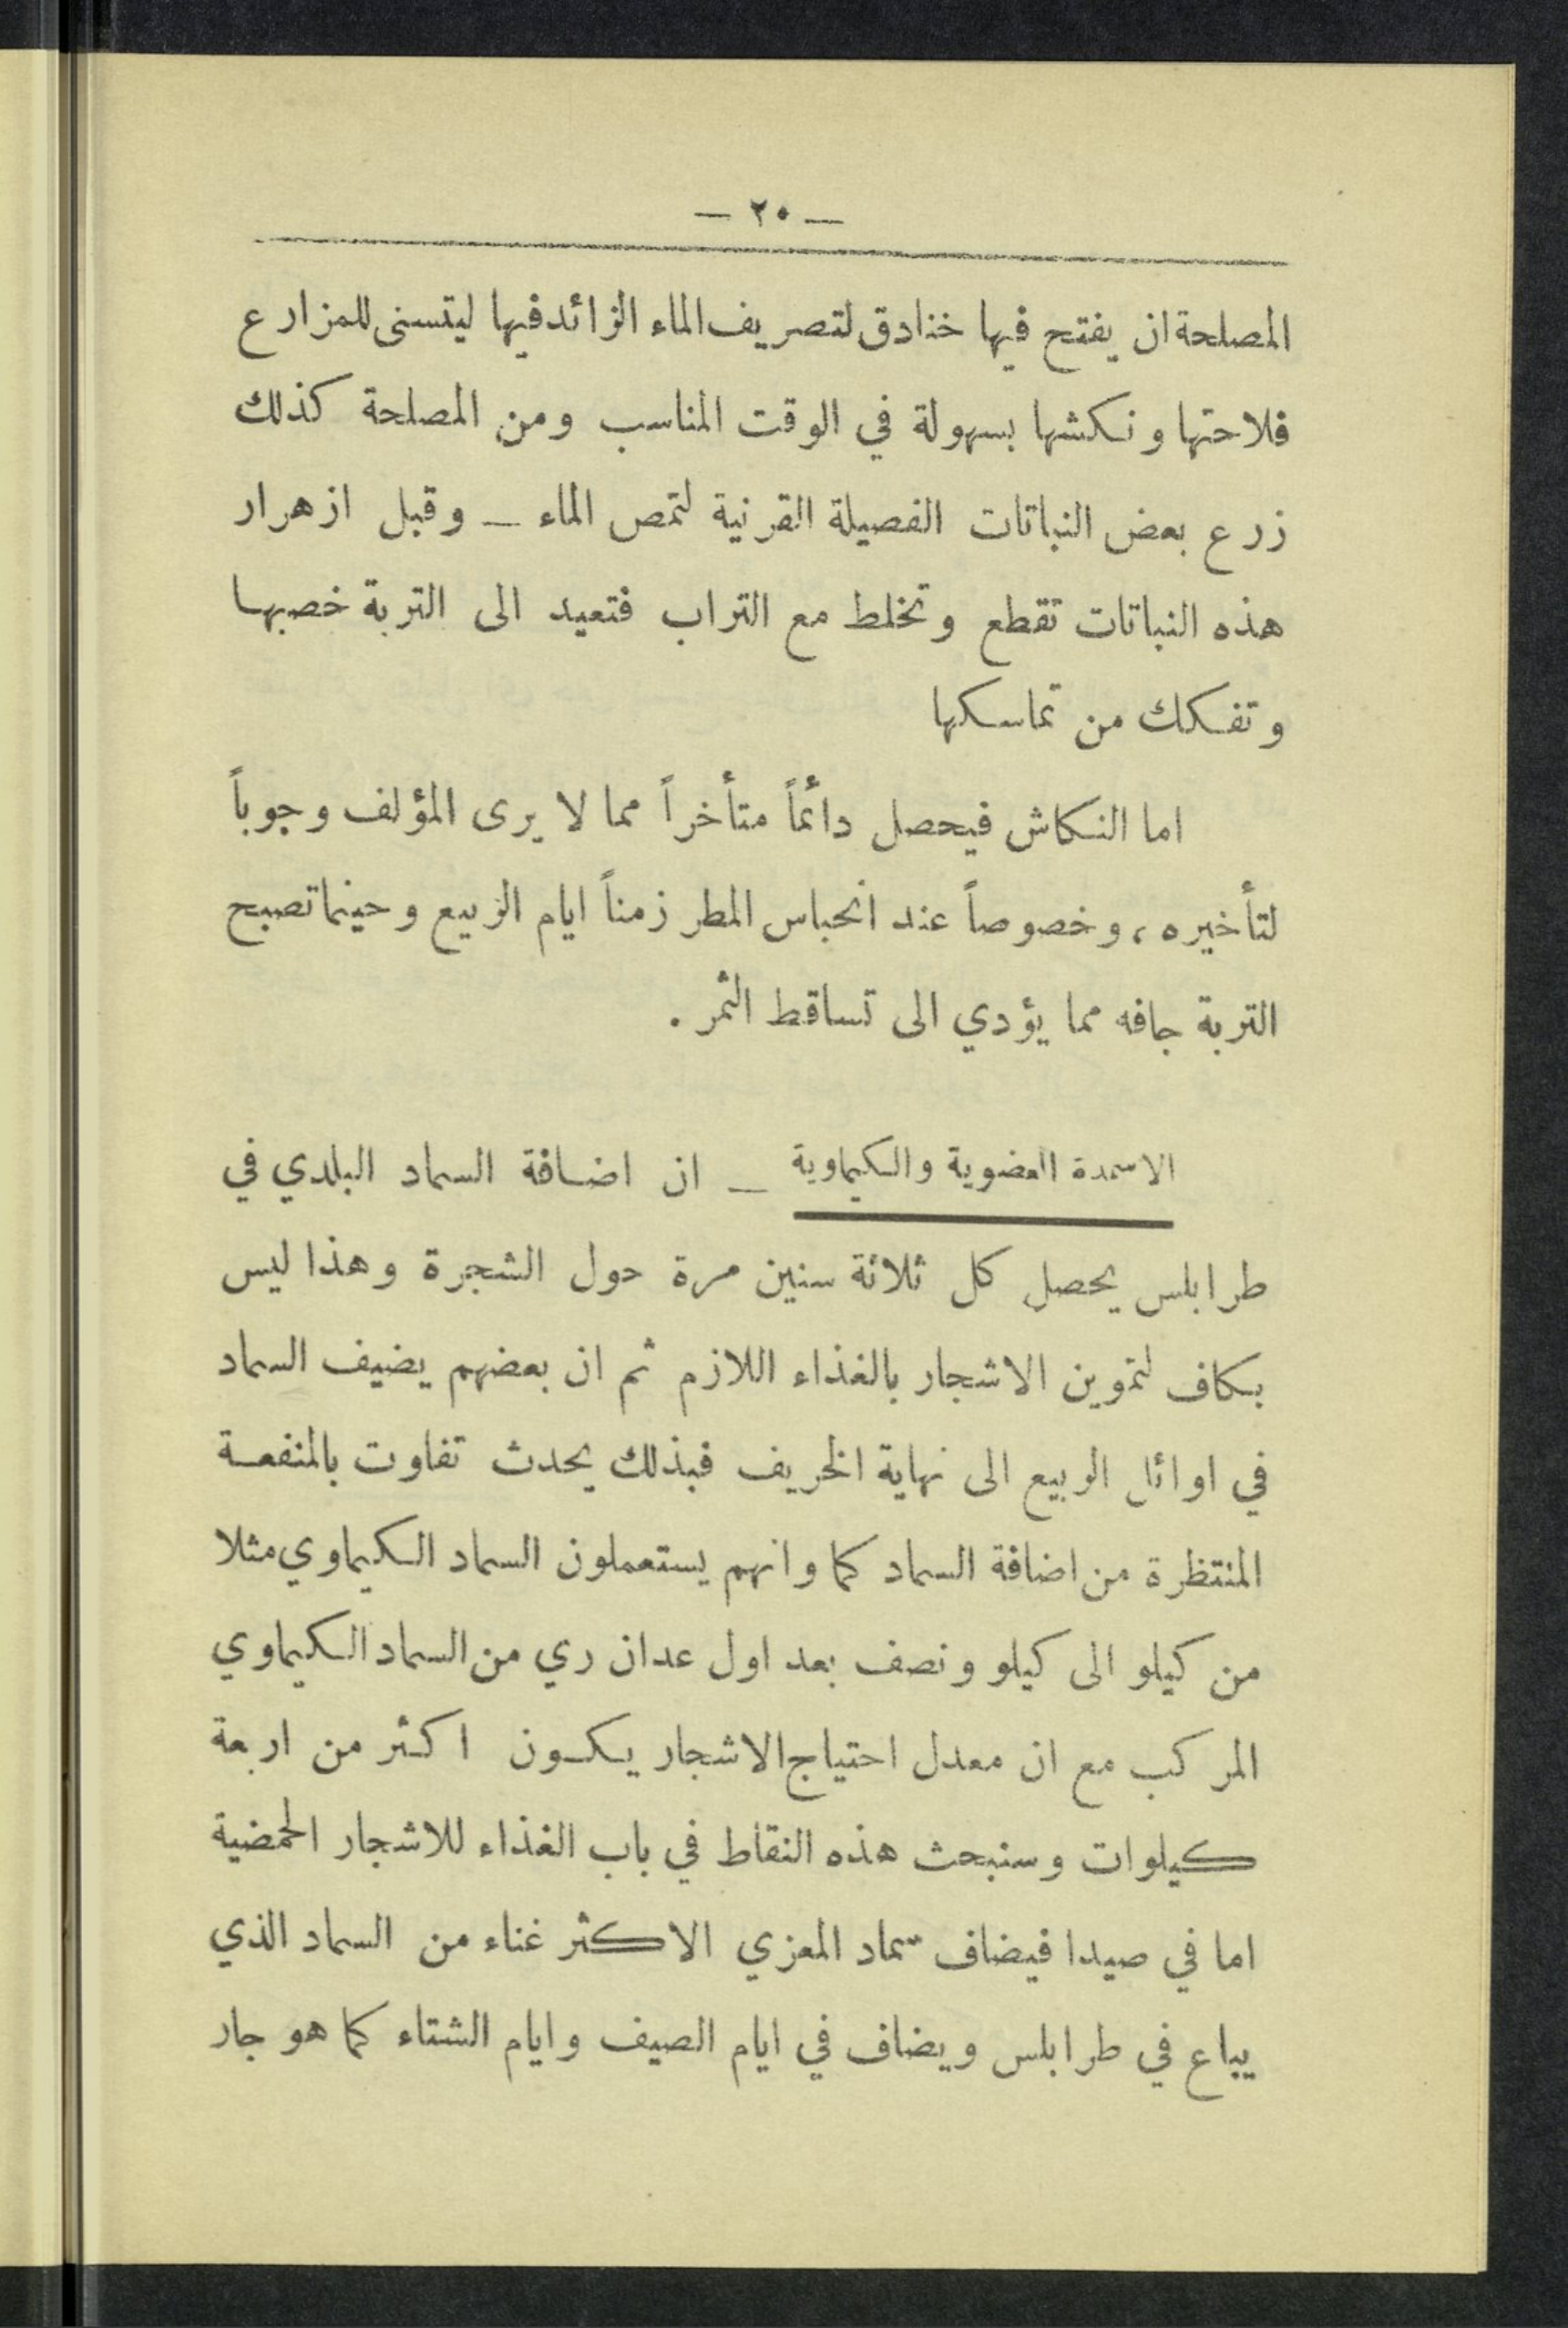 — ٢٠ —
المصلحة ان يفتح فيها خنادق لتصريف الماء الزائد فيها ليتسنى للمزارع
فلاحتها ونكشها بسهولة في الوقت المناسب ومن المصلحة كذلك
زرع بعض النباتات الفصيلة القرنية لتمص الماء — وقبل ازهرار
هذه النباتات تقطع وتخلط مع التراب فتعيد الى التربة خصبها
وتفكك من تماسكها
اما النكاش فيحصل دائماً متأخراً مما لا يرى المؤلف وجوباً
لتأخيره ، وخصوصاً عند انحباس المطر زمناً ايام الربيع وحينما تصبح
التربة جافه مما يؤدي الى تساقط الثمر .
الاسمدة العضوية والكيماوية — ان اضافة السماد البلدي في
طرابلس يحصل كل ثلاثة سنين مرة حول الشجرة وهذا ليس
بكاف لتموين الاشجار بالغذاء اللازم ثم ان بعضهم يضيف السماد
في اوائل الربيع الى نهاية الخريف فبذلك يحدث تفاوت بالمنفعة
المنتظرة من اضافة السماد كما وانهم يستعملون السماد الكيماوي مثلا
من كيلو الى كيلو ونصف بعد اول عدان ري من السماد الكيماوي
المركب مع ان معدل احتياج الاشجار يكون اكثر من اربعة
كيلوات وسنبحث هذه النقاط في باب الغذاء للاشجار الحمضية
اما في صيدا فيضاف سماد المعزي الاكثر غناء من السماد الذي
يباع في طرابلس ويضاف في ايام الصيف وايام الشتاء كما هو جار